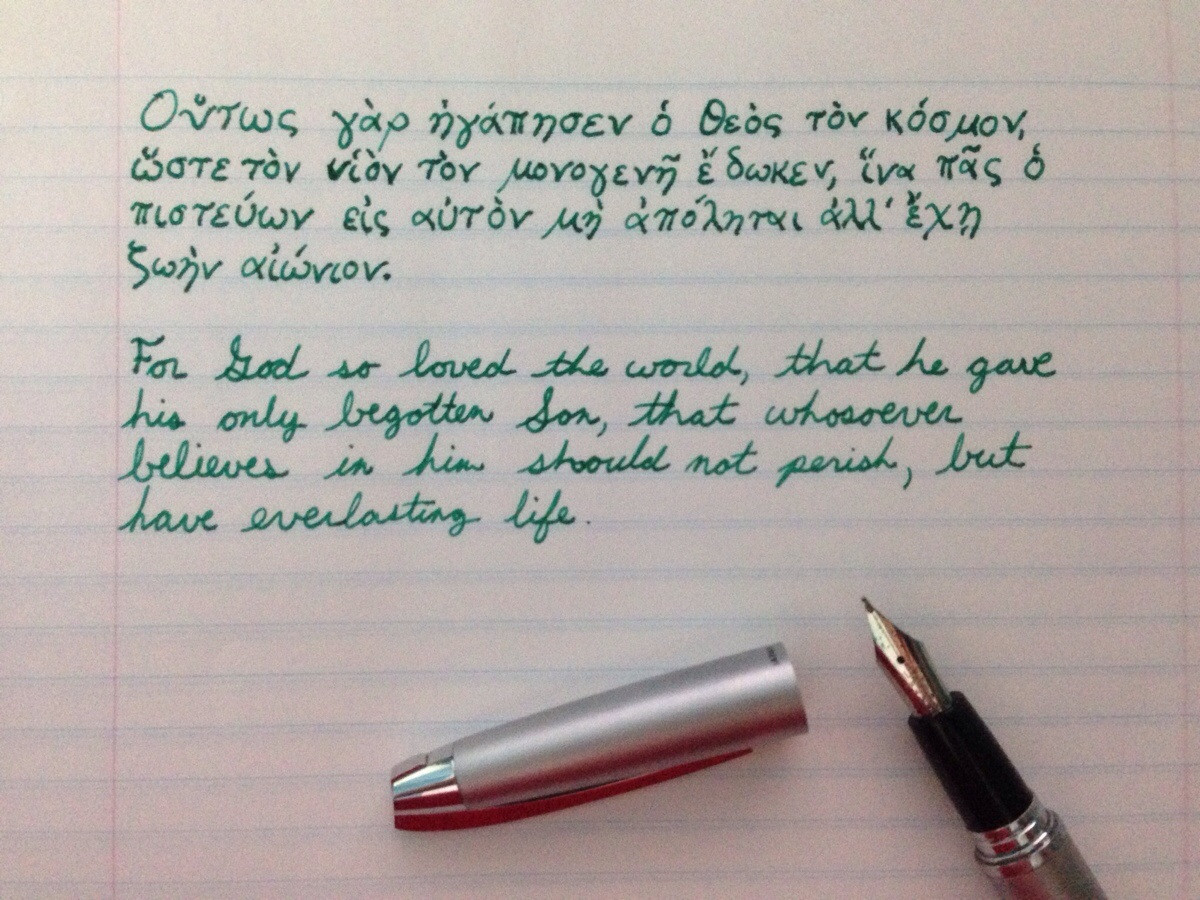 Οὕτως γὰρ ἠγάπησεν ὁ Θεὸς τὸν κόσμον,
ὥστε τὸν υἱὸν τὸν μονογενῆ ἔδωκεν, ἵνα πᾶς ὁ
πιστεύων εἰς αὐτὸν μὴ ἀπόληται ἀλλ' ἔχῃ
ζωὴν αἰώνιον.
For God so loved the world, that he gave
his only begotten Son, that whosoever
believes in him should not perish, but
have everlasting life.